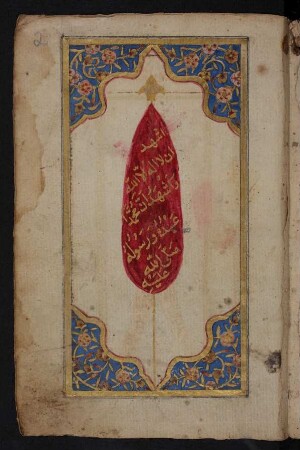 2
اشهد
ان لا اله الا الله
واشهد ان محمدا
عبده ورسوله
صلى الله
عليه